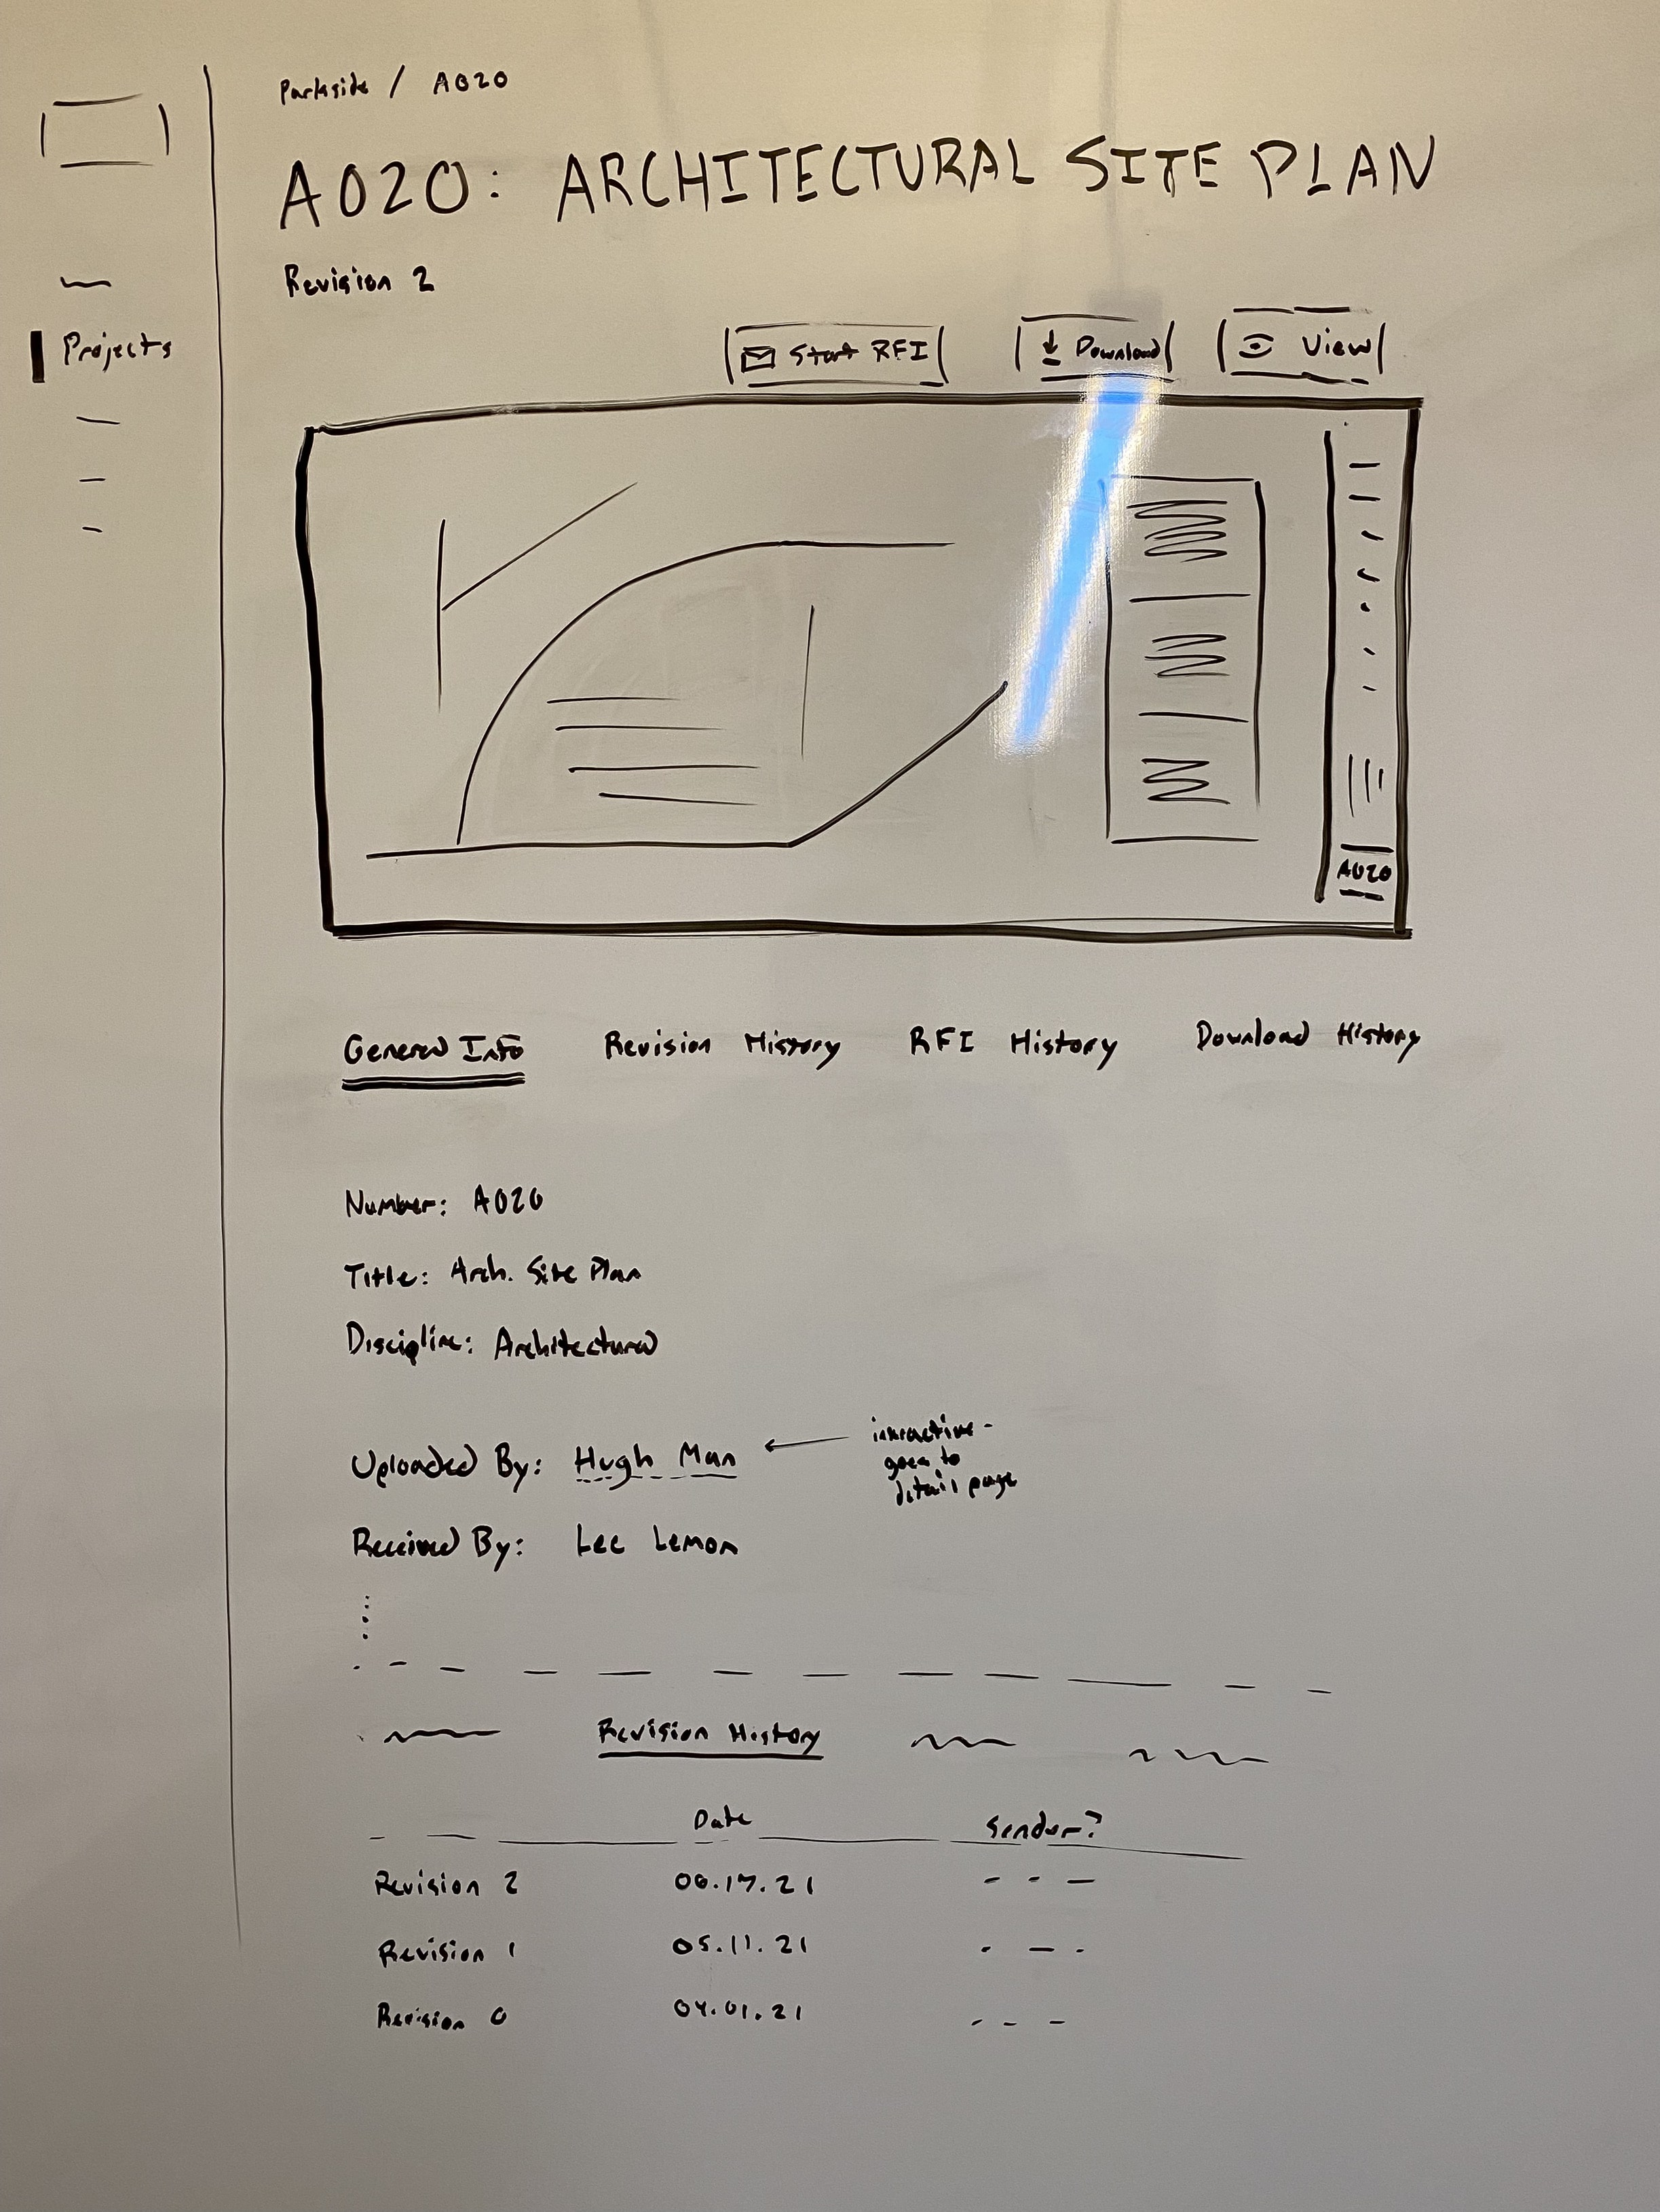 Parkside / A020
A020: ARCHITECTURAL SITE PLAN
Revision 2
Projects
Start RFI
Download
View
A020
General Info
Revision History
RFI History
Download History
Number: A020
Title: Arch. Site Plan
Discipline: Architectural
Uploaded By: Hugh Man
interactive -
goes to
detail page
Received By: Lee Lemon
Revision History
Date
Sender?
Revision 2
06.17.21
Revision 1
05.11.21
Revision 0
04.01.21